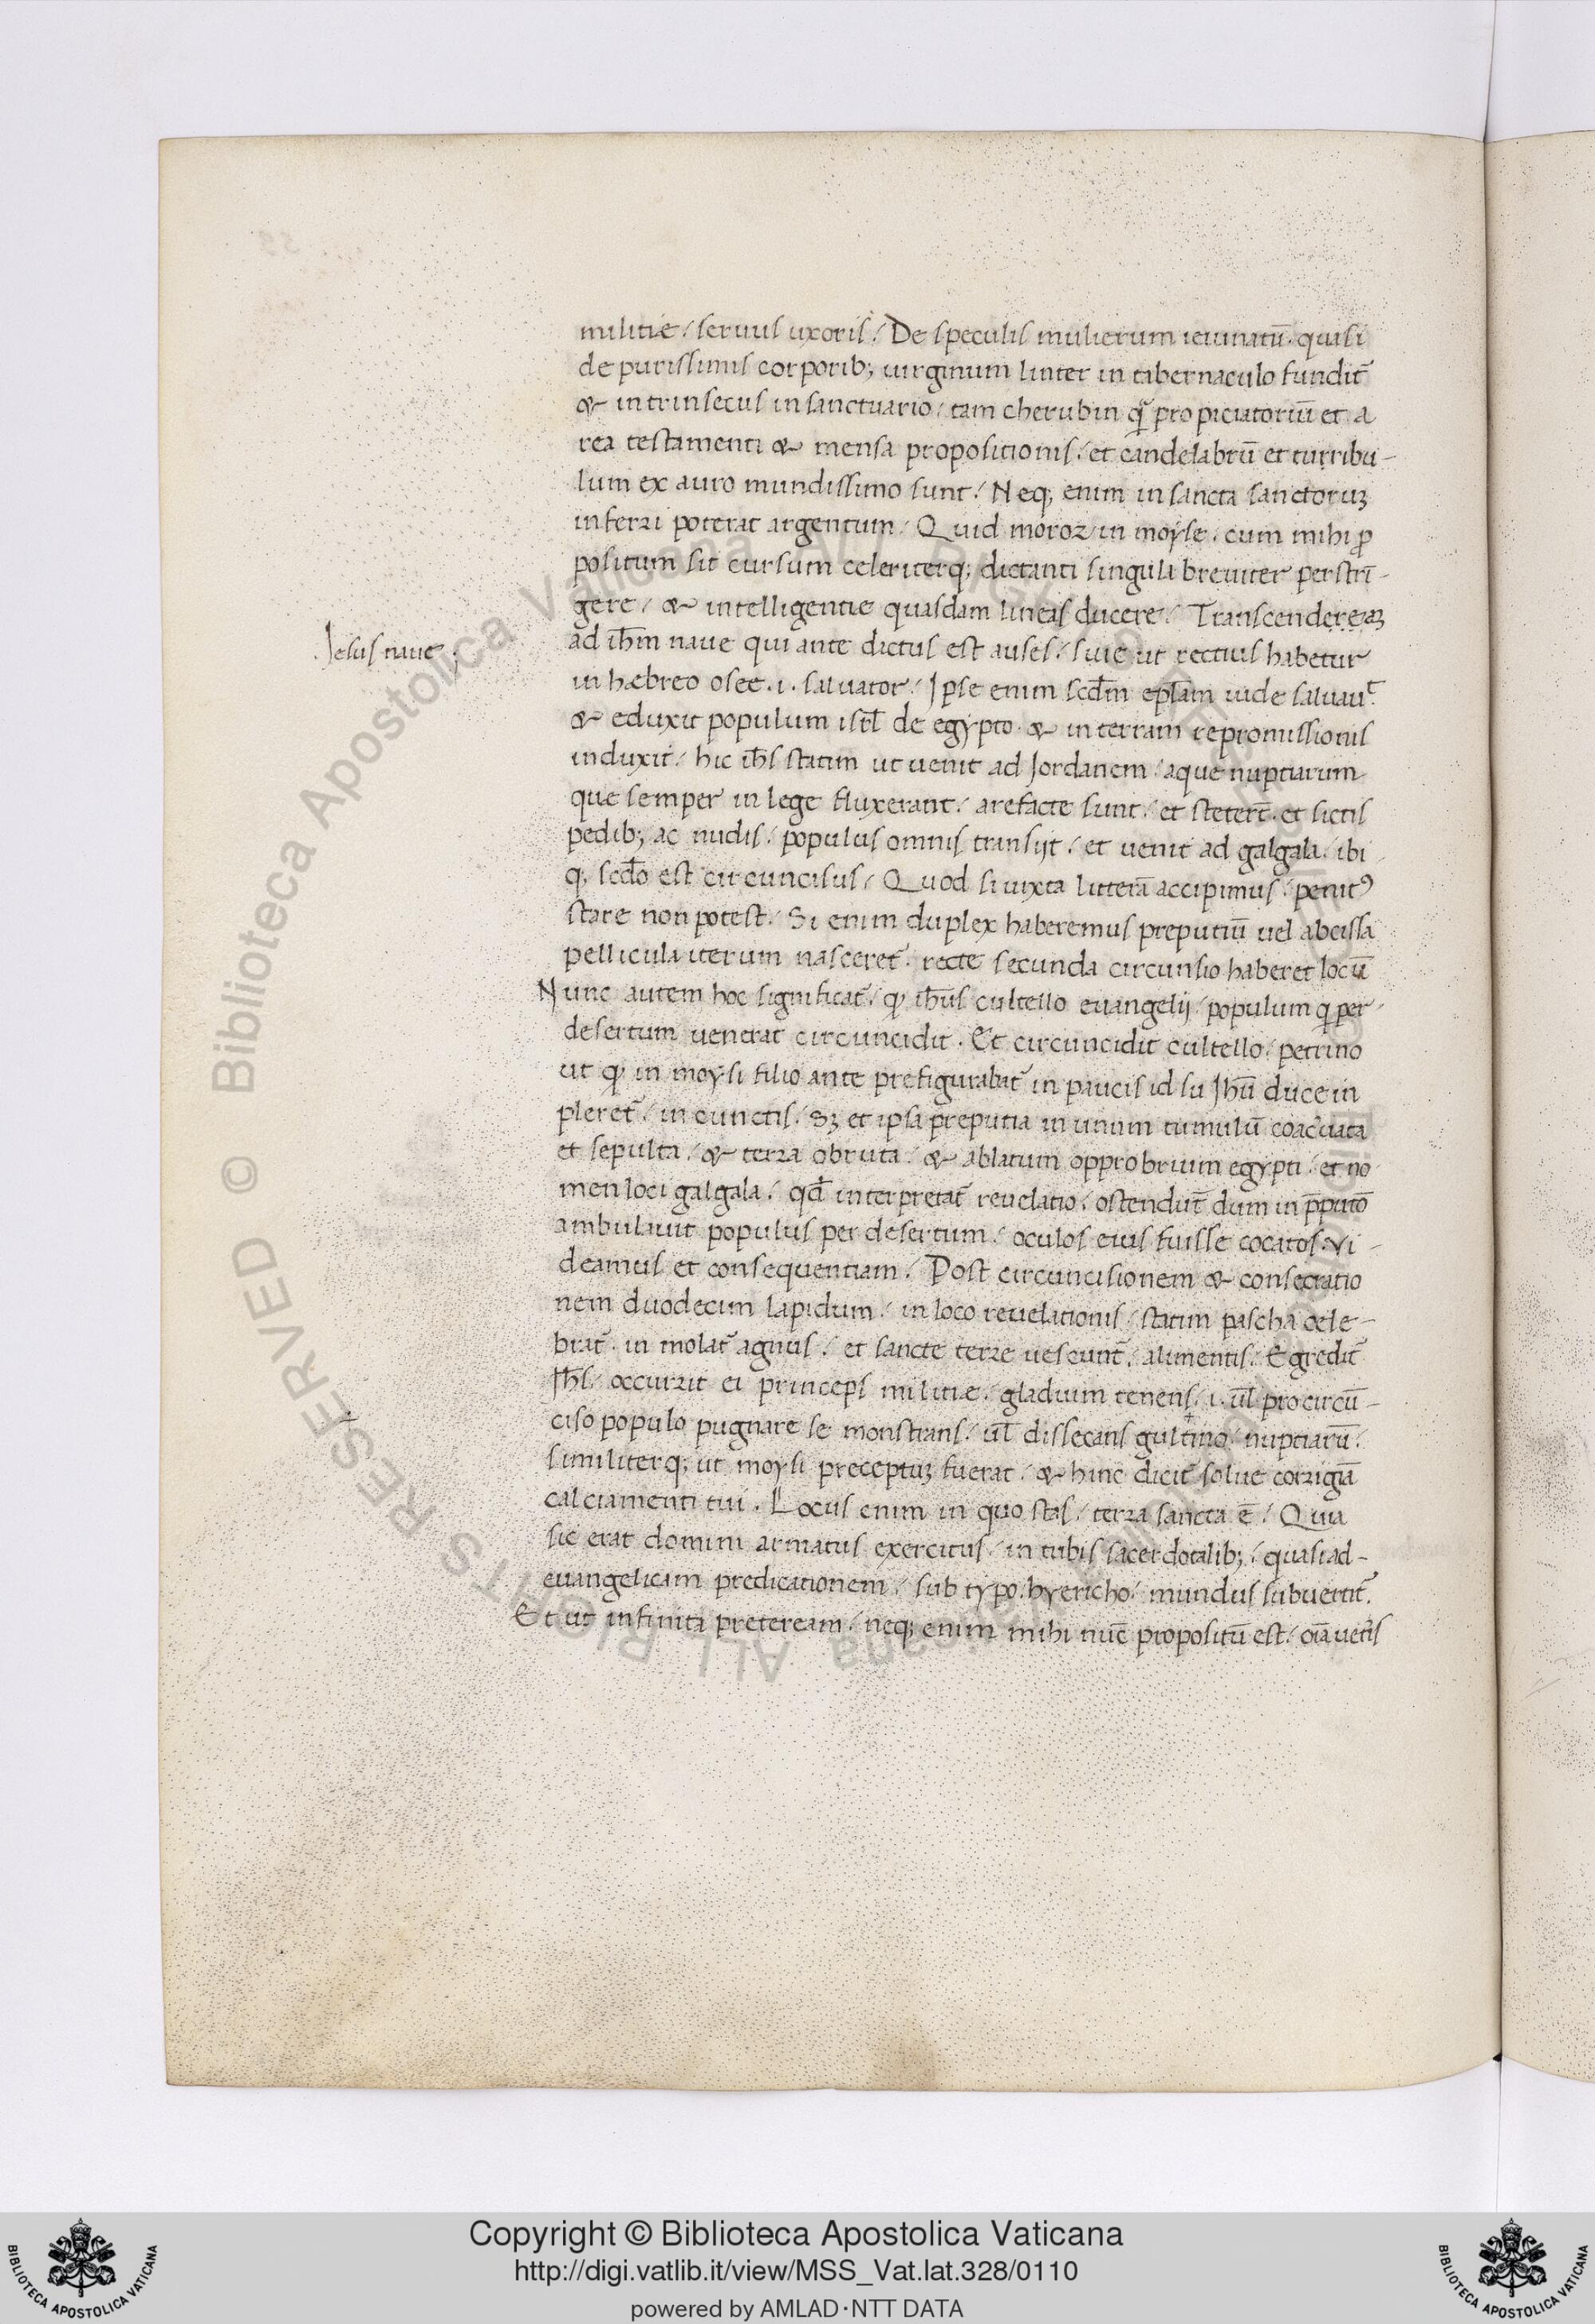 militie / seruus uxoris / De speculis mulierum ieiunatū · quasi
de purissimis corporib; uirginum linter in tabernaculo fundit̄
& intrinsecus in sanctuario / tam cherubin q̄ propiciatoriū et a
rea testamenti & mensa propositionis / et candelabrū et turribu-
lum ex auro mundissimo sunt / Neq; enim in sancta sanctoruꝫ
inferri poterat argentum / Quid moror in moyse / cum mihi ꝓ
positum sit cursum celeriterq; dictanti singula breuiter perstrī-
gere / & intelligentie quasdam lineas ducere / Transcendere
.Jesus naue ;
ad ih̄m naue qui ante dictus est auses / siue ut rectius habetur
in hæbreo osee · i · saluator / Ipse enim scd̄m epl̄am iude saluauᵗ
& eduxit populum isrl̄ de egypto · & in terram repromissionis
induxit / hic ih̄s statim ut uenit ad Jordanem / aque nuptiarum
que semper in lege fluxerant / arefacte sunt / et steter̄t · et sictis
pedib; ac nudis / populus omnis transijt / et uenit ad galgala / ibi
q; scd̄o est circuncisus / Quod si iuxta litterā accipimus / penitꝰ
stare non potest / Si enim duplex haberemus preputiū uel abcissa
pellicula iterum nasceret̄ · recte secunda circunsio haberet locū
Nunc autem hoc significat̄ / ꝙ ih̄us cultello euangelij / populum q per
desertum uenerat circuncidit · Et circuncidit cultello / petrino
ut ꝙ in moysi filio ante prefigurabat̄ in paucis id su Jhū duce in
pleret̄ / in cunctis / Sꝫ et ipsa preputia in unum tumulū coac̾uata
et sepulta / & terra obruta / & ablatum opprobrium egypti / et no
men loci galgala / qd̄ interpretat̄ reuelatio / ostendūt dum in p̄putō
ambulauit populus per desertum / oculos eius fuisse cocatos · Vi-
deamus et consequentiam / Post circuncisionem & consecratio
nem duodecim lapidum / in loco reuelationis / statim pascha cele-
brat̄ · in molat̄ agnus / et sancte terre uescunt̄ / alimentis / Egredit̄
Jh̄s / occurrit ei princeps militiæ / gladium tenens / i · ul̄ pro circū-
ciso populo pugnare se monstrans / ul̄ dissecans gultino / nuptiarū /
similiterq; ut moysi preceptuꝫ fuerat / & hinc dicit̄ solue corrigiā
calciamenti tui · Locus enim in quo stas / terra sancta ē / Quia
sic erat domini armatus exercitus / in tubis sacerdotalib; / quasi ad-
euangelicam predicationem / sub typo / hyericho / mundus subuertit̄.
Et ut infinita preteream / neq; enim mihi nūc propositū est / oīa uet̾is
Copyright © Biblioteca Apostolica Vaticana
http://digi.vatlib.it/view/MSS_Vat.lat.328/0110
powered by AMLAD·NTT DATA